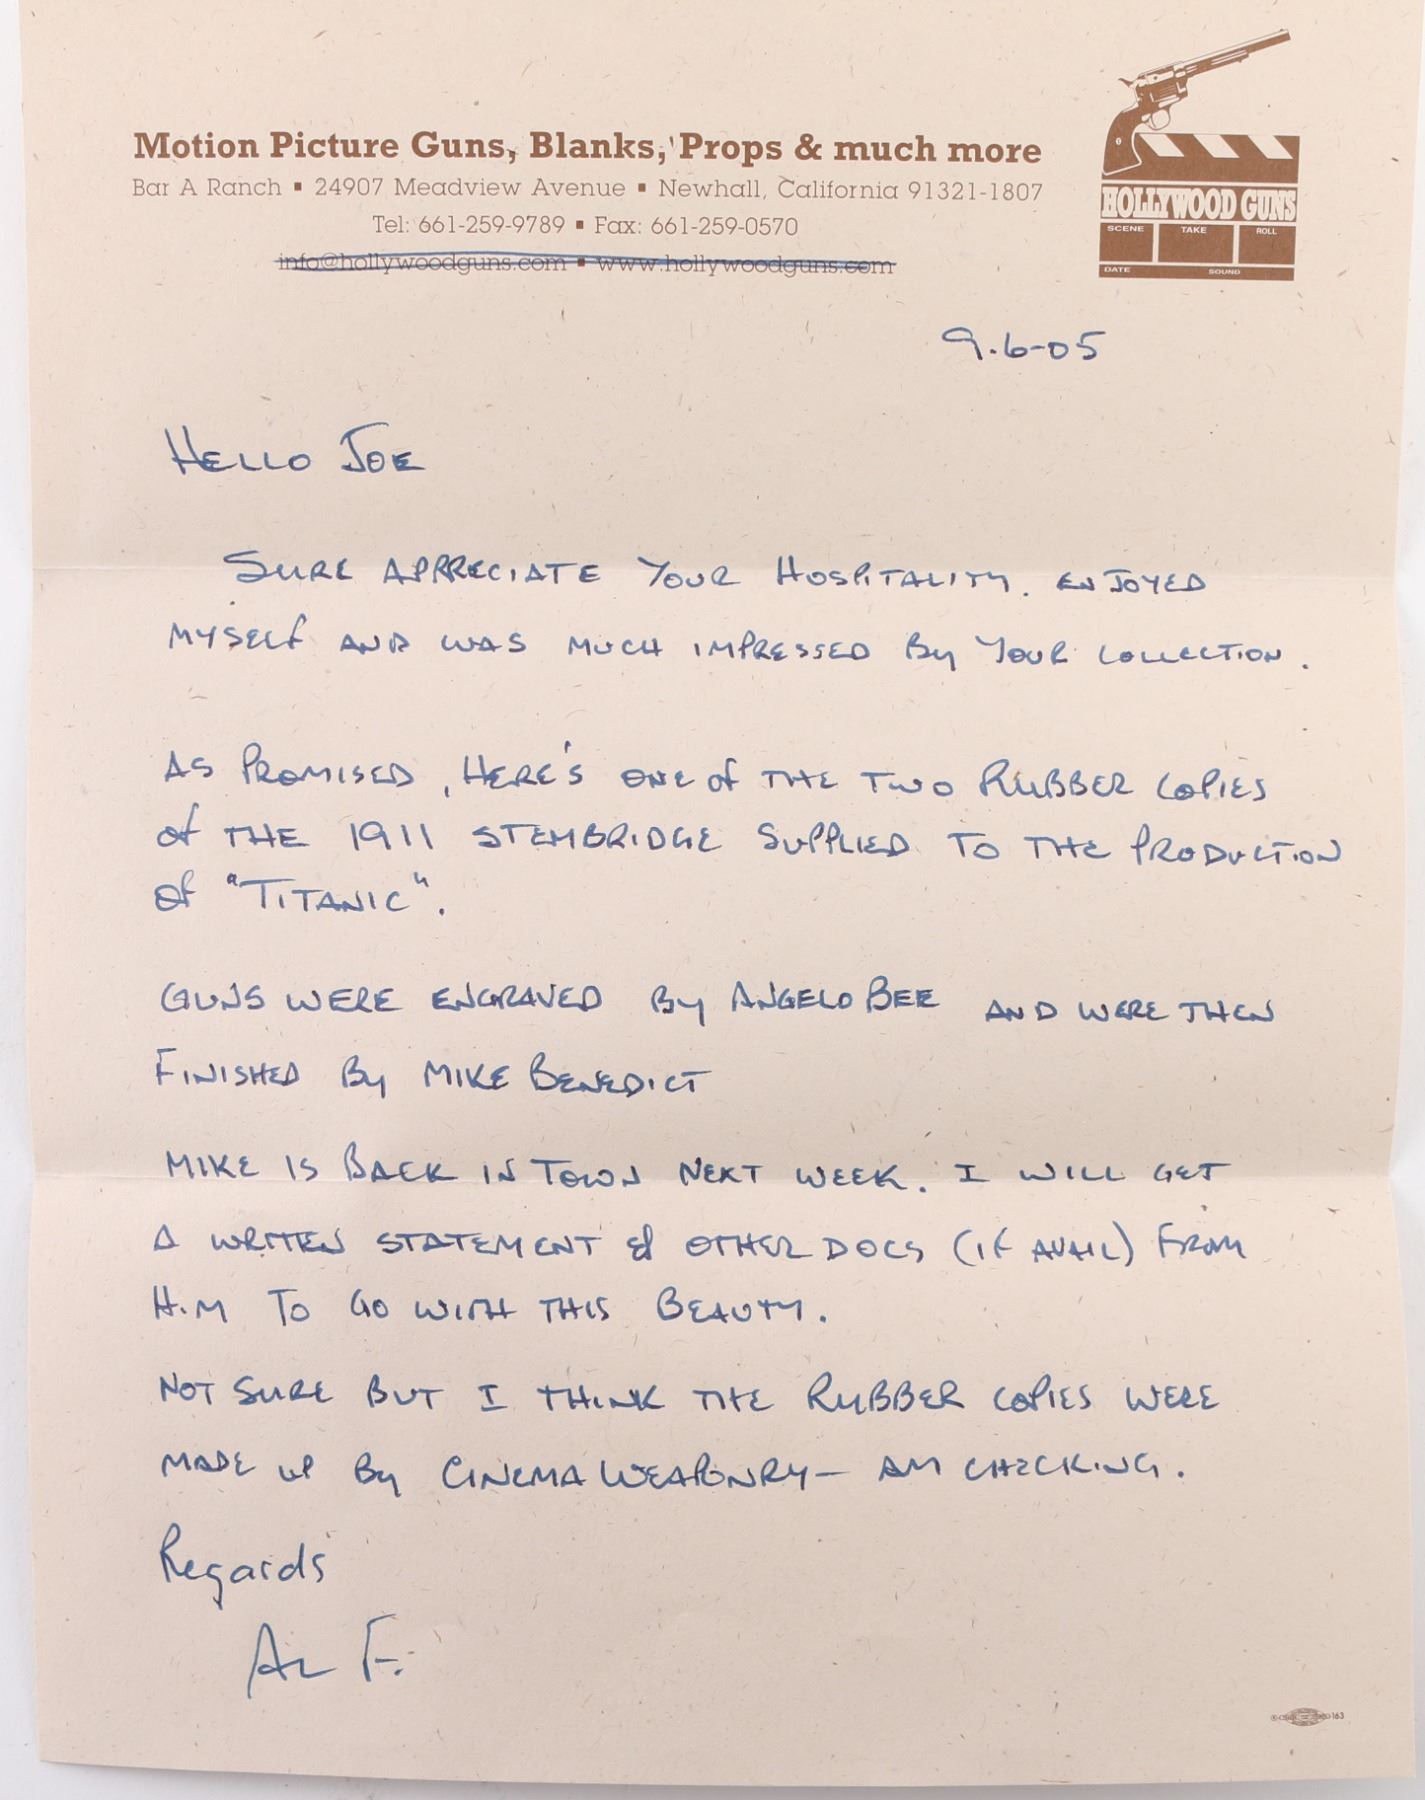 Motion Picture Guns, Blanks, Props & much more
Bar A Ranch ▪ 24907 Meadview Avenue ▪ Newhall, California 91321-1807
Tel: 661-259-9789 ▪ Fax: 661-259-0570
info@hollywoodguns.com ▪ www.hollywoodguns.com
HOLLYWOOD GUNS
SCENE TAKE ROLL
DATE SOUND
9.6-05
HELLO JOE
SURE APPRECIATE YOUR HOSPITALITY. ENJOYED
MYSELF AND WAS MUCH IMPRESSED BY YOUR COLLECTION.
AS PROMISED, HERE'S ONE OF THE TWO RUBBER COPIES
OF THE 1911 STEMBRIDGE SUPPLIED TO THE PRODUCTION
OF "TITANIC".
GUNS WERE ENGRAVED BY ANGELO BEE AND WERE THEN
FINISHED BY MIKE BENEDICT
MIKE IS BACK IN TOWN NEXT WEEK. I WILL GET
A WRITTEN STATEMENT & OTHER DOCS (IF AVAIL) FROM
HIM TO GO WITH THIS BEAUTY.
NOT SURE BUT I THINK THE RUBBER COPIES WERE
MADE UP BY CINEMA WEAPONRY — AM CHECKING.
Regards
AL F.
163